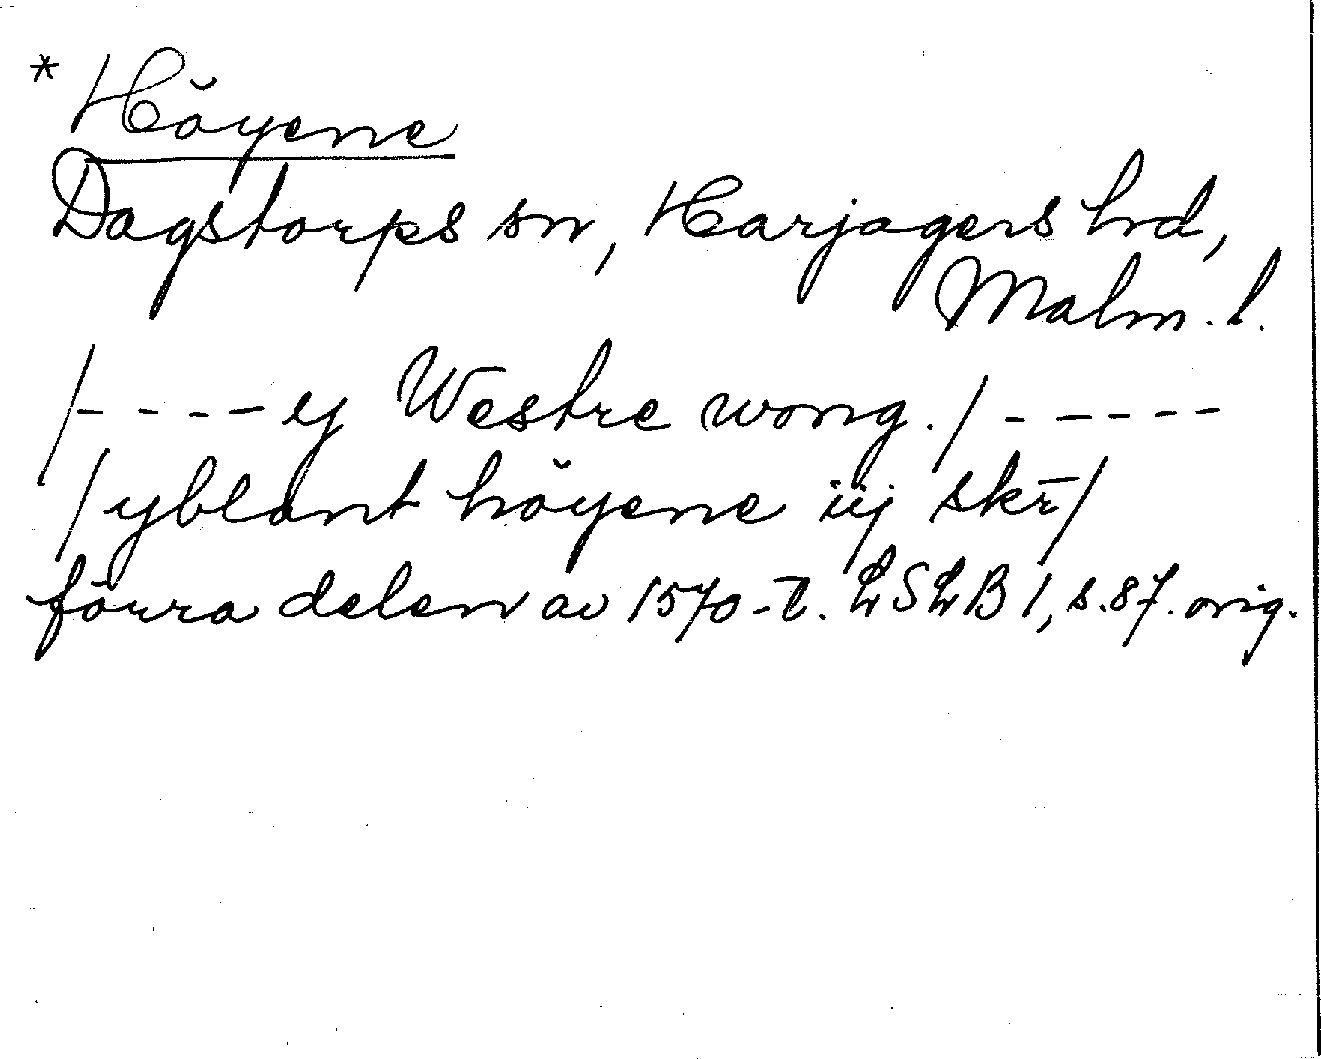 * Höyene
Dagstorps sn, Harjagers hd,
Malm. l.
/----ej Westre wong./-----
/yblant höyene iij skr̄/
förra delen av 1570-t. LSLB 1, s.87. orig.